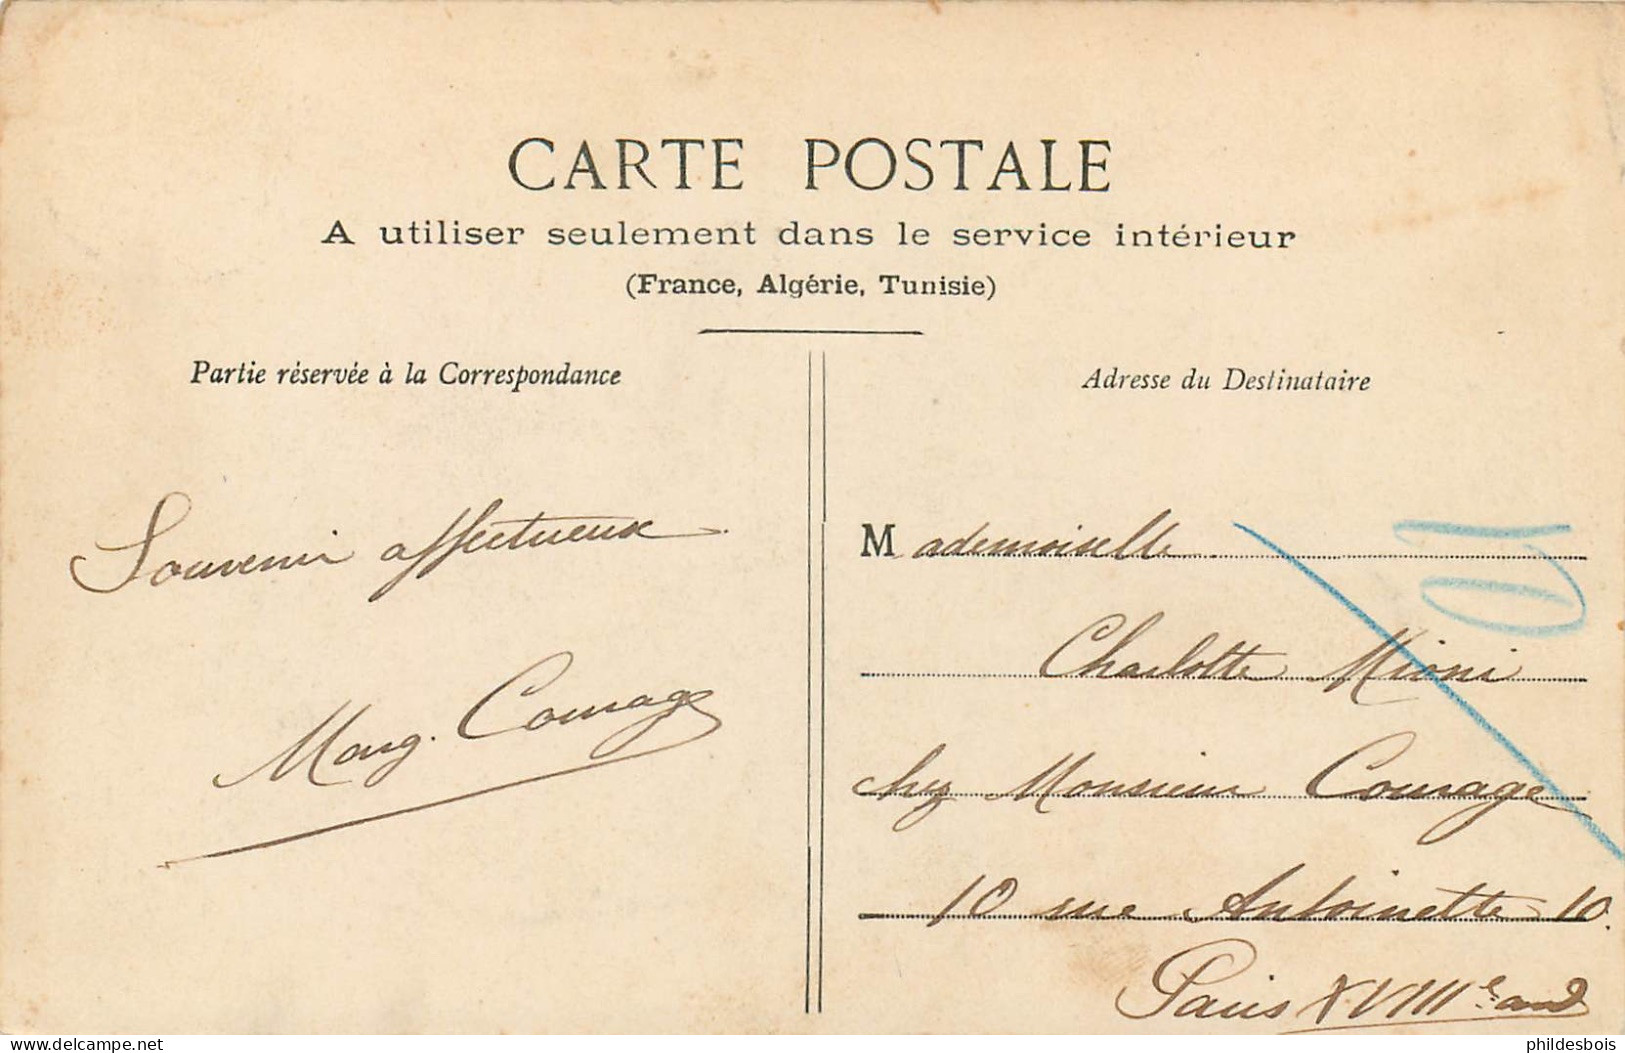 CARTE POSTALE
A utiliser seulement dans le service intérieur
(France, Algérie, Tunisie)
Partie réservée à la Correspondance
Souvenir affectueux
Marg. Courage
Adresse du Destinataire
10
Mademoiselle
Charlotte Mioni
chez Monsieur Courage
10 rue Antoinette 10.
Paris XVIIIe. arrd
delcampe.net
phildesbois